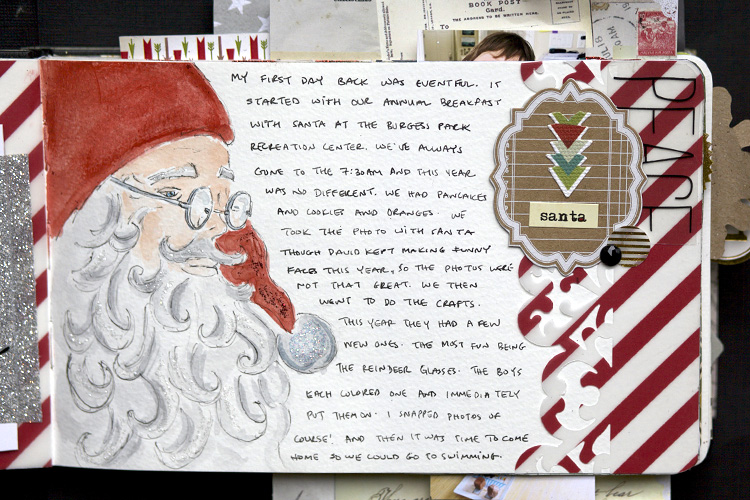 BOOK POST
(ALL THE ABOVE TO BE WRITTEN HERE)
MY FIRST DAY BACK WAS EVENTFUL. IT
STARTED WITH OUR ANNUAL BREAKFAST
WITH SANTA AT THE BURGESS PARK
RECREATION CENTER. WE'VE ALWAYS
GONE TO THE 7:30AM AND THIS YEAR
WAS NO DIFFERENT. WE HAD PANCAKES
AND COOKIES AND ORANGES. WE
TOOK THE PHOTO WITH SANTA
THOUGH DAVID KEPT MAKING FUNNY
FACES THIS YEAR, SO THE PHOTOS WERE
NOT THAT GREAT. WE THEN
WENT TO DO THE CRAFTS.
THIS YEAR THEY HAD A FEW
NEW ONES. THE MOST FUN BEING
THE REINDEER GLASSES. THE BOYS
EACH COLORED ONE AND IMMEDIATELY
PUT THEM ON. I SNAPPED PHOTOS OF
COURSE! AND THEN IT WAS TIME TO COME
HOME SO WE COULD GO TO SWIMMING.
santa
PEACE